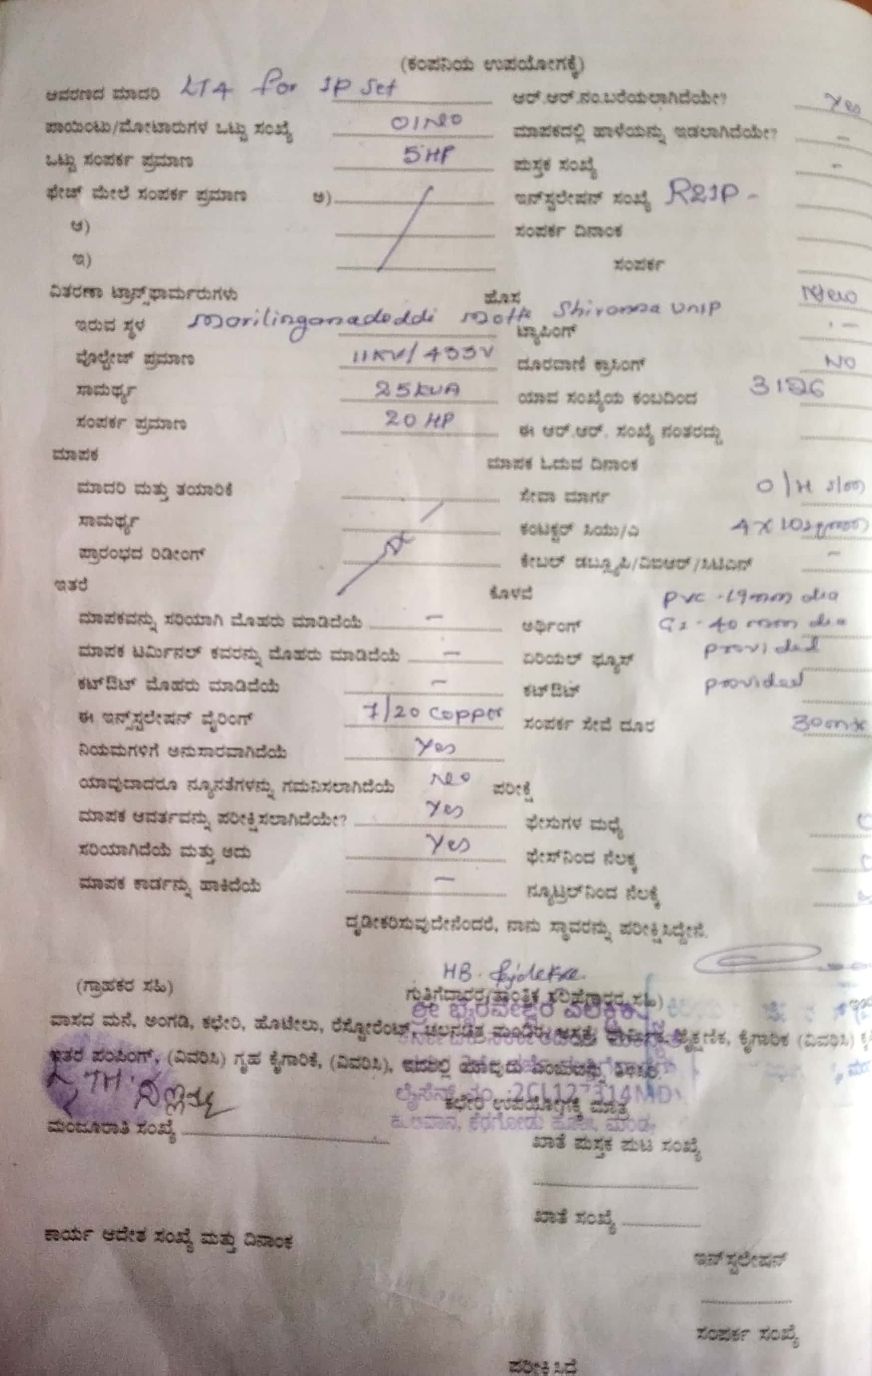 (ಕಂಪನಿಯ ಉಪಯೋಗಕ್ಕೆ)
ಆವರಣದ ಮಾದರಿ LT4 for IP Set ಆರ್.ಆರ್.ನಂ.ಬರೆಯಲಾಗಿದೆಯೇ? Yes
ಪಾಯಿಂಟು/ಮೋಟಾರುಗಳ ಒಟ್ಟು ಸಂಖ್ಯೆ 01 No ಮಾಪಕದಲ್ಲಿ ಹಾಳೆಯನ್ನು ಇಡಲಾಗಿದೆಯೇ? -
ಒಟ್ಟು ಸಂಪರ್ಕ ಪ್ರಮಾಣ 5 HP ಪುಸ್ತಕ ಸಂಖ್ಯೆ -
ಫೇಜ್ ಮೇಲೆ ಸಂಪರ್ಕ ಪ್ರಮಾಣ ಅ) ಇನ್‌ಸ್ಟಲೇಷನ್ ಸಂಖ್ಯೆ R2IP -
ಆ) ಸಂಪರ್ಕ ದಿನಾಂಕ
ಇ) ಸಂಪರ್ಕ
ವಿತರಣಾ ಟ್ರಾನ್ಸ್‌ಫಾರ್ಮರುಗಳು ಹೊಸ New
ಇರುವ ಸ್ಥಳ Shivanna UNIP ಟ್ಯಾಪಿಂಗ್ -
ವೋಲ್ಟೇಜ್ ಪ್ರಮಾಣ 11KV/433V ದೂರವಾಣಿ ಕ್ರಾಸಿಂಗ್ NO
ಸಾಮರ್ಥ್ಯ 25KVA ಯಾವ ಸಂಖ್ಯೆಯ ಕಂಬದಿಂದ
ಸಂಪರ್ಕ ಪ್ರಮಾಣ 20 HP ಈ ಆರ್.ಆರ್. ಸಂಖ್ಯೆ ನಂತರದ್ದು
ಮಾಪಕ ಮಾಪಕ ಓದುವ ದಿನಾಂಕ
ಮಾದರಿ ಮತ್ತು ತಯಾರಿಕೆ ಸೇವಾ ಮಾರ್ಗ O/H
ಸಾಮರ್ಥ್ಯ ಕಂಟಕ್ಟರ್ ಸಿಯು/ಎ 4 X 10sqmm
ಪ್ರಾರಂಭದ ರಿಡೀಂಗ್ ಕೇಬಲ್ ಡಬ್ಲ್ಯೂಪಿ/ವಿಐಆರ್/ಸಿಟಿಎಸ್ -
ಇತರೆ ಕೊಳವೆ PVC - 19mm dia
ಮಾಪಕವನ್ನು ಸರಿಯಾಗಿ ಮೊಹರು ಮಾಡಿದೆಯೆ - ಅರ್ಥಿಂಗ್ GI - 40 mm dia
ಮಾಪಕ ಟರ್ಮಿನಲ್ ಕವರನ್ನು ಮೊಹರು ಮಾಡಿದೆಯೆ - ಏರಿಯಲ್ ಫ್ಯೂಸ್ provided
ಕಟ್‌ಔಟ್ ಮೊಹರು ಮಾಡಿದೆಯೆ - ಕಟ್‌ಔಟ್ provided
ಈ ಇನ್ಸ್‌ಸ್ಟಲೇಷನ್ ವೈರಿಂಗ್ 7/20 copper ಸಂಪರ್ಕ ಸೇವೆ ದೂರ 30mtr
ನಿಯಮಗಳಿಗೆ ಅನುಸಾರವಾಗಿದೆಯೆ Yes
ಯಾವುದಾದರೂ ನ್ಯೂನತೆಗಳನ್ನು ಗಮನಿಸಲಾಗಿದೆಯೆ No ಪರೀಕ್ಷೆ
ಮಾಪಕ ಆವರ್ತವನ್ನು ಪರೀಕ್ಷಿಸಲಾಗಿದೆಯೇ? Yes ಫೇಸುಗಳ ಮಧ್ಯೆ
ಸರಿಯಾಗಿದೆಯೆ ಮತ್ತು ಅದು Yes ಫೇಸ್‌ನಿಂದ ನೆಲಕ್ಕೆ
ಮಾಪಕ ಕಾರ್ಡನ್ನು ಹಾಕಿದೆಯೆ - ನ್ಯೂಟ್ರಲ್‌ನಿಂದ ನೆಲಕ್ಕೆ
ದೃಡೀಕರಿಸುವುದೇನೆಂದರೆ, ನಾನು ಸ್ಥಾವರನ್ನು ಪರೀಕ್ಷಿಸಿದ್ದೇನೆ.
(ಗ್ರಾಹಕರ ಸಹಿ) ಗುತ್ತಿಗೆದಾರರ/ತಾಂತ್ರಿಕ ಸಲಹೆಗಾರರ ಸಹಿ)
ಶ್ರೀ ಭೈರವೇಶ್ವರ ಎಲೆಕ್ಟ್ರಿಕಲ್ಸ್
ವಾಸದ ಮನೆ, ಅಂಗಡಿ, ಕಛೇರಿ, ಹೊಟೇಲು, ರೆಸ್ಟೋರೆಂಟ್, ಚಲನಚಿತ್ರ ಮಂದಿರ, ಕೈಗಾರಿಕ (ವಿವರಿಸಿ)
ಇತರೆ ಪಂಪಿಂಗ್, (ವಿವರಿಸಿ) ಗೃಹ ಕೈಗಾರಿಕೆ, (ವಿವರಿಸಿ),
ಕಛೇರಿ ಉಪಯೋಗಕ್ಕೆ ಮಾತ್ರ
ಮಂಜೂರಾತಿ ಸಂಖ್ಯೆ
ಖಾತೆ ಪುಸ್ತಕ ಪುಟ ಸಂಖ್ಯೆ
ಖಾತೆ ಸಂಖ್ಯೆ
ಕಾರ್ಯ ಆದೇಶ ಸಂಖ್ಯೆ ಮತ್ತು ದಿನಾಂಕ
ಇನ್‌ಸ್ಟಲೇಷನ್
ಸಂಪರ್ಕ ಸಂಖ್ಯೆ
ಪರೀಕ್ಷಿಸಿದೆ